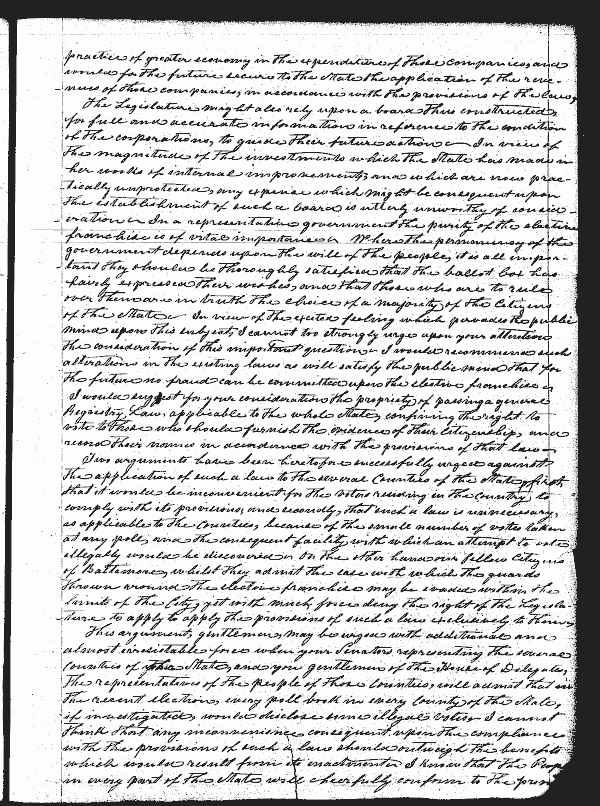 practice of greater economy in the expenditure of those companies, and
would for the future secure to the State the application of the reve-
nues of those companies, in accordance with the provisions of the law,
The Legislature might also rely upon a board thus constructed,
for full and accurate information in reference to the condition
of the corporations, to guide their future action. In view of
the magnitude of the investments which the State has made in
her works of internal improvements, and which are now prac-
tically unprotected, any expense which might be consequent upon
the establishment of such a board is utterly unworthy of consid-
eration. In a representative government the purity of the elective
franchise is of vital importance. Where the permanency of the
government depends upon the will of the people, it is all impor-
tant they should be thoroughly satisfied that the ballot box has
fairly expressed their wishes, and that those who are to rule
over them are in truth the choice of a majority of the Citizens
of the State. In view of the excited feeling which pervades the public
mind upon this subject, I cannot too strongly urge upon your attention
the consideration of this important question. I would recommend such
alterations in the existing laws as will satisfy the public mind that for
the future no fraud can be committed upon the elective franchise.
I would suggest for your consideration the propriety of passing a general
Registry Law, applicable to the whole State, confining the right to
vote to those who should furnish the evidence of their Citizenship, and
record their names in accordance with the provisions of that law.
Two arguments have been heretofore successfully urged against
the application of such a law to the several Counties of the State, first,
that it would be inconvenient for the voters residing in the Country to
comply with its provisions, and secondly, that such a law is unnecessary,
as applicable to the Counties, because of the small number of votes taken
at any poll, and the consequent facility with which an attempt to vote
illegally would be discovered. On the other hand our fellow Citizens
of Baltimore, whilst they admit the ease with which the guards
thrown around the elective franchise may be evaded within the
limits of the City, yet with much force deny the right of the Legisla-
ture to apply to apply the provisions of such a law exclusively to them.
This argument, gentlemen, may be urged with additional and
almost irresistable force when your Senators representing the several
Counties of this State, and you gentlemen of the House of Delegates,
the representatives of the people of those Counties, will admit that in
the recent election, every poll book in every County of the State,
if investigated, would disclose some illegal votes. I cannot
think that any inconvenience consequent upon the compliance
with the provisions of such a law should outweigh the benefits
which would result from its enactment. I know that the Peop
in every part of the State will cheerfully conform to the